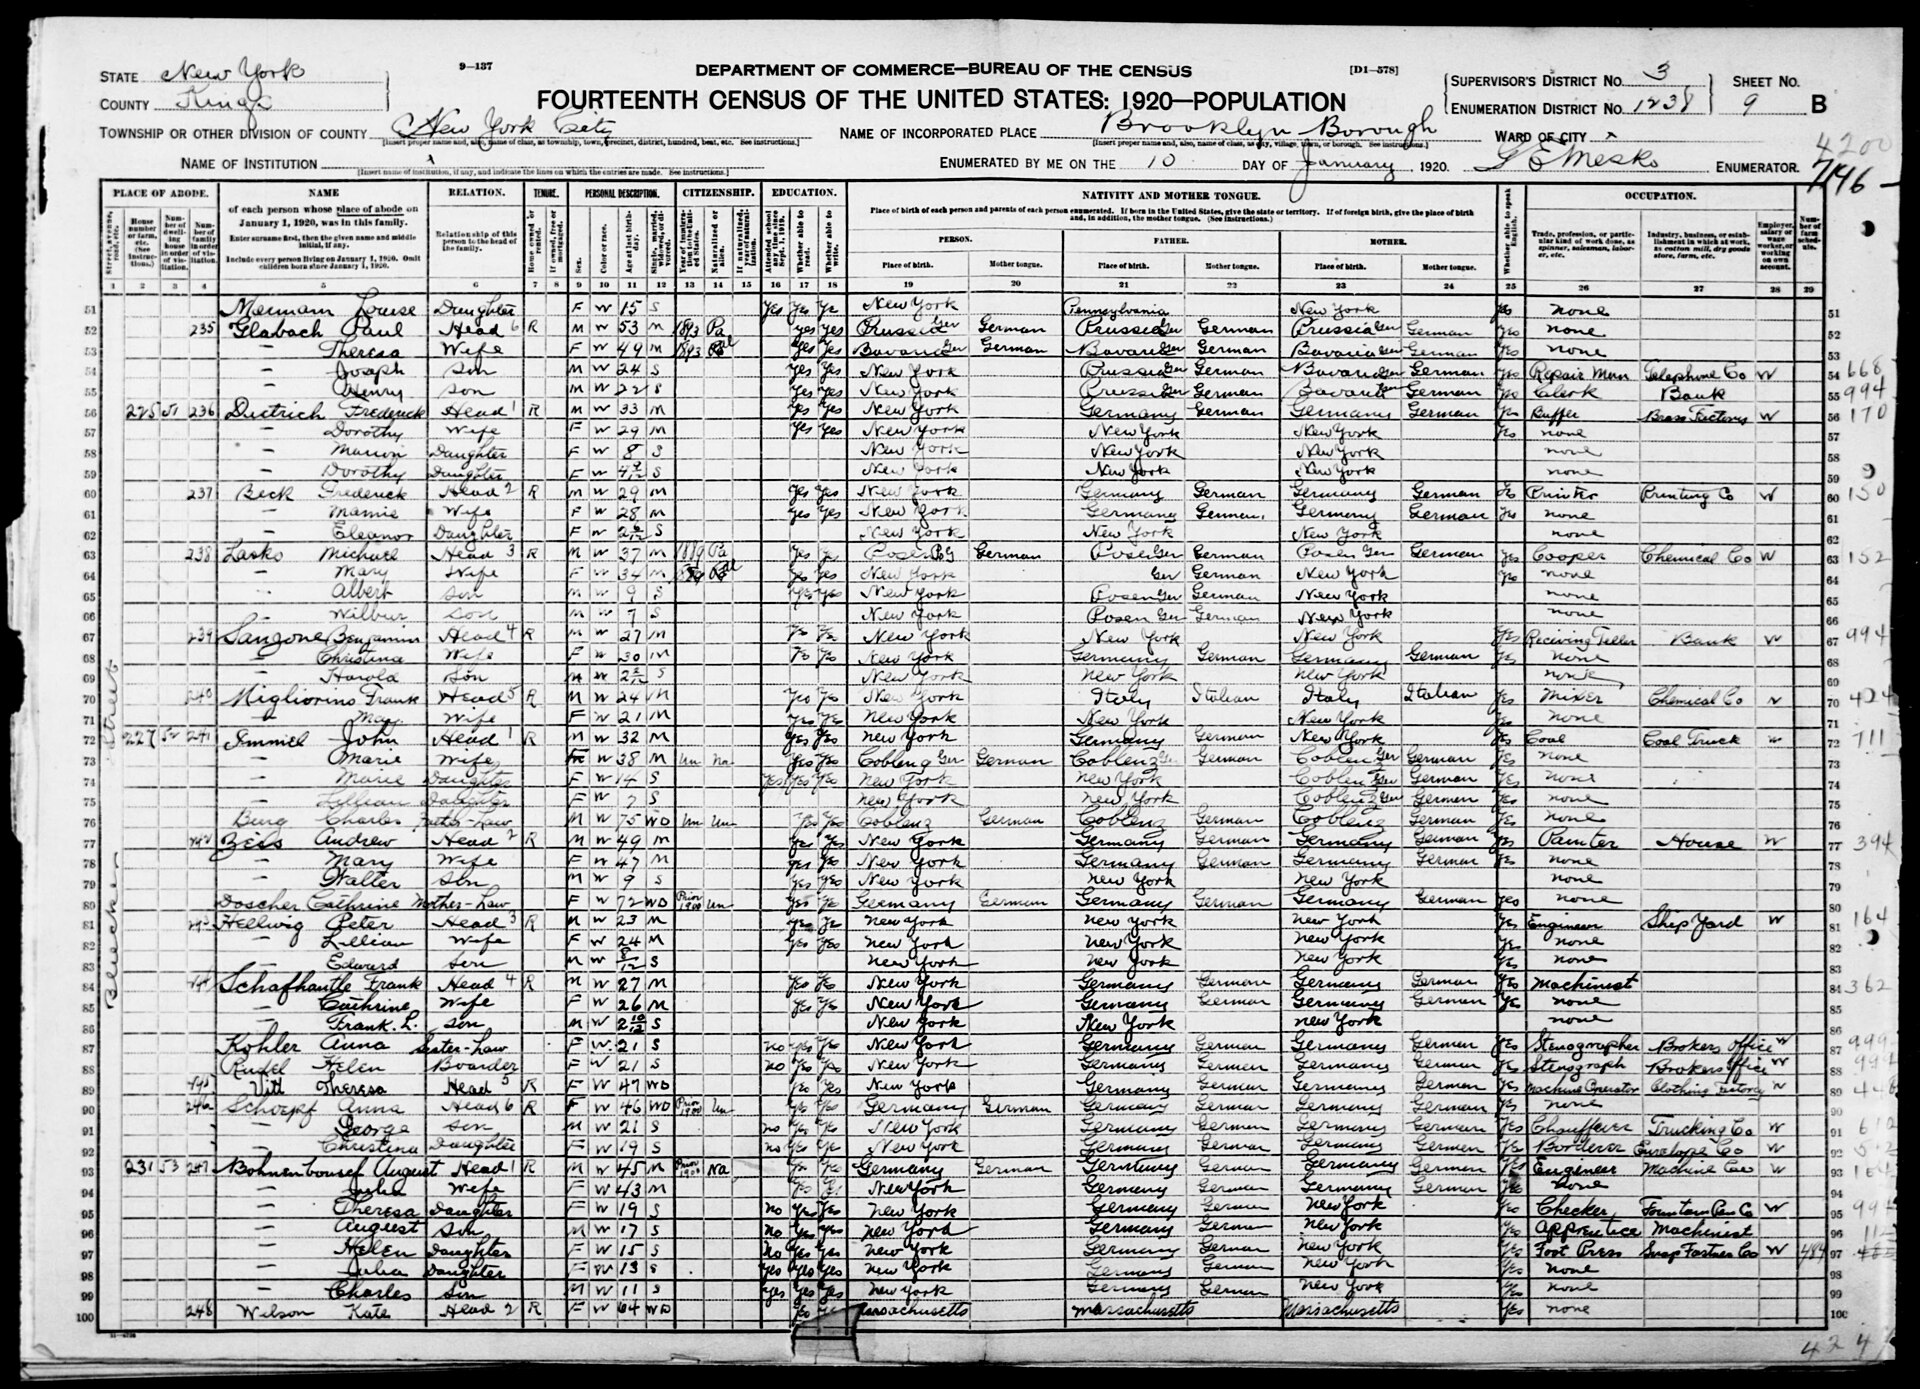 9—137
DEPARTMENT OF COMMERCE—BUREAU OF THE CENSUS
[D1—578]
STATE New York
COUNTY Kings
FOURTEENTH CENSUS OF THE UNITED STATES: 1920—POPULATION
SUPERVISOR'S DISTRICT NO. 3
ENUMERATION DISTRICT NO. 1238
SHEET NO. 9 B
TOWNSHIP OR OTHER DIVISION OF COUNTY New York City
NAME OF INCORPORATED PLACE Brooklyn Borough
WARD OF CITY x
4200
NAME OF INSTITUTION x
ENUMERATED BY ME ON THE 10 DAY OF January, 1920. G E Mesko ENUMERATOR.
PLACE OF ABODE. NAME RELATION. TENURE. PERSONAL DESCRIPTION. CITIZENSHIP. EDUCATION. NATIVITY AND MOTHER TONGUE. OCCUPATION.
of each person whose place of abode on January 1, 1920, was in this family.
Enter surname first, then the given name and middle initial, if any.
Include every person living on January 1, 1920. Omit children born since January 1, 1920.
Relationship of this person to the head of the family.
Place of birth of each person and parents of each person enumerated. If born in the United States, give the state or territory. If of foreign birth, give the place of birth and, in addition, the mother tongue. (See instructions.)
PERSON. FATHER. MOTHER.
Place of birth. Mother tongue. Place of birth. Mother tongue. Place of birth. Mother tongue.
1 2 3 4 5 6 7 8 9 10 11 12 13 14 15 16 17 18 19 20 21 22 23 24 25 26 27 28 29
51 Louise Daughter F W 15 S Yes Yes Ye New York Pennsylvania New York Yes none 51
52 235 Glabach Paul Head 6 R M W 53 M 1893 Pa Yes Yes Prussia Ger German Prussia Ger German Prussia Ger German Yes none 52
53 — Theresa Wife F W 49 M 1893 Yes Yes Bavaria Ger German Bavaria Ger German Bavaria Ger German Yes none 53
54 — Joseph Son M W 24 S Yes Yes New York Prussia Ger German Bavaria Ger German Yes Repair Man Telephone Co W 54 668
55 — Henry Son M W 22 S Yes Yes New York Prussia Ger German Bavaria Ger German Yes Clerk Bank 55 994
56 225 51 236 Dietrich Frederick Head 1 R M W 33 M Yes Yes New York Germany German Germany German Yes Buffer Brass Factory W 56 170
57 — Dorothy Wife F W 29 M Yes Yes New York New York New York Yes none 57
58 — Marion Daughter F W 8 S New York New York New York none 58
59 — Dorothy Daughter F W S New York New York New York none 59
60 237 Beck Frederick Head 2 R M W 29 M Yes Yes New York Germany German Germany German Yes Printer Printing Co W 60 150
61 — Mamie Wife F W 28 M Yes Yes New York Germany German Germany German Yes none 61
62 — Eleanor Daughter F W S New York New York New York none 62
63 238 Lasko Michael Head 3 R M W 37 M 1889 Pa Yes Ye Posen German Posen Ger German Posen Ger German Yes Cooper Chemical Co W 63 152
64 — Mary Wife F W 34 M Yes Yes New York Ger German New York Yes none 64
65 — Albert Son M W 9 S Yes Yes New York Posen Ger German New York none 65
66 — Wilbur Son M W 7 S New York Posen Ger German New York none 66
67 239 Sanzone Benjamin Head 4 R M W 27 M Ye Ye New York New York New York Yes Reciving Teller Bank W 67 994
68 — Christina Wife F W 30 M Yes Yes New York Germany German Germany German Yes none 68
69 — Harold Son M W S New York New York New York none 69
70 240 Migliorino Frank Head 5 R M W 24 M Yes Yes New York Italy Italian Italy Italian Yes Mixer Chemical Co W 70
71 — May Wife F W 21 M Yes Yes New York New York New York Yes none 71
72 227 52 241 John Head 1 R M W 32 M Yes Yes New York Germany German New York Yes Coal Coal Truck W 72 711
73 — Marie Wife F W 38 M Un Na Yes Yes Coblenz Ger German Coblenz Ger German Coblenz Ger German Yes none 73
74 — Marie Daughter F W 14 S Yes Yes Yes New York New York Coblenz Ger German Yes none 74
75 — Lillian Daughter F W 7 S New York New York Coblenz Ger German Yes none 75
76 Charles Father-Law M W 75 WD Un Un Yes Yes Coblenz German Coblenz German Coblenz German Yes none 76
77 242 Zeis Andrew Head 2 R M W 49 M Yes Yes New York Germany German Germany German Yes Painter House W 77 394
78 — Mary Wife F W 47 M Yes Yes New York Germany German Germany German Yes none 78
79 — Walter Son M W 9 S Yes Yes New York New York New York none 79
80 Doscher Cathrine Mother-Law F W 72 WD Prior 1900 Un Yes Ye Germany German Germany German Germany German Yes none 80
81 243 Hellwig Peter Head 3 R M W 23 M Yes Ye New York New York New York Yes Engineer Ship Yard W 81 164
82 — Lillian Wife F W 24 M Yes Yes New York New York New York Yes none 82
83 — Edward Son M W S New York New York New York Yes none 83
84 244 Schafhautle Frank Head 4 R M W 27 M Yes Ye New York Germany German Germany German Yes Machinest 84 362
85 — Cathrine Wife F W 26 M Yes Yes New York Germany German Germany German Yes none 85
86 — Frank. L. Son M W 2 10/12 S New York New York New York none 86
87 Kohler Anna Sister-Law F W 21 S no Yes Ye New York Germany German Germany German Yes Stenographer Brokers office W 87
88 Helen Boarder F W 21 S no Yes Yes New York Germany German Germany German Yes Stenograph Brokers office W 88
89 245 Vitt Theresa Head 5 R F W 47 WD Yes Yes New York Germany German Germany German Yes Machine Operator Clothing Factory W 89
90 246 Schoepf Anna Head 6 R F W 46 WD Prior 1900 Un Yes Yes Germany German Germany German Germany German Yes none 90
91 — George Son M W 21 S no Yes Yes New York Germany German Germany German Yes Chauffeur Trucking Co W 91
92 — Christina Daughter F W 19 S no Yes Yes New York Germany German Germany German Yes Envelope Co W 92
93 231 53 247 August Head 1 R M W 45 M Prior 1900 Na Yes Yes Germany German Germany German Germany German Yes Engineer Machine W 93
94 — Julia Wife F W 43 M Yes Yes New York Germany German Germany German Yes none 94
95 — Theresa Daughter F W 19 S no Yes Yes New York Germany German New York Yes Checker Fountain Pen Co W 95
96 — August Son M W 17 S No Yes Yes New York Germany German New York Yes Apprentice Machinest 96
97 — Helen Daughter F W 15 S No Yes Yes New York Germany German New York Yes Foot Press Snap Fastner Co W 484 97
98 — Julia Daughter F W 13 S Yes Yes Yes New York Germany German New York Yes none 98
99 — Charles Son M W 11 S Yes Yes Yes New York Germany German New York Yes none 99
100 248 Wilson Kate Head 2 R F W 64 WD Yes Massachusetts Massachusetts Massachusetts Yes none 100
Street